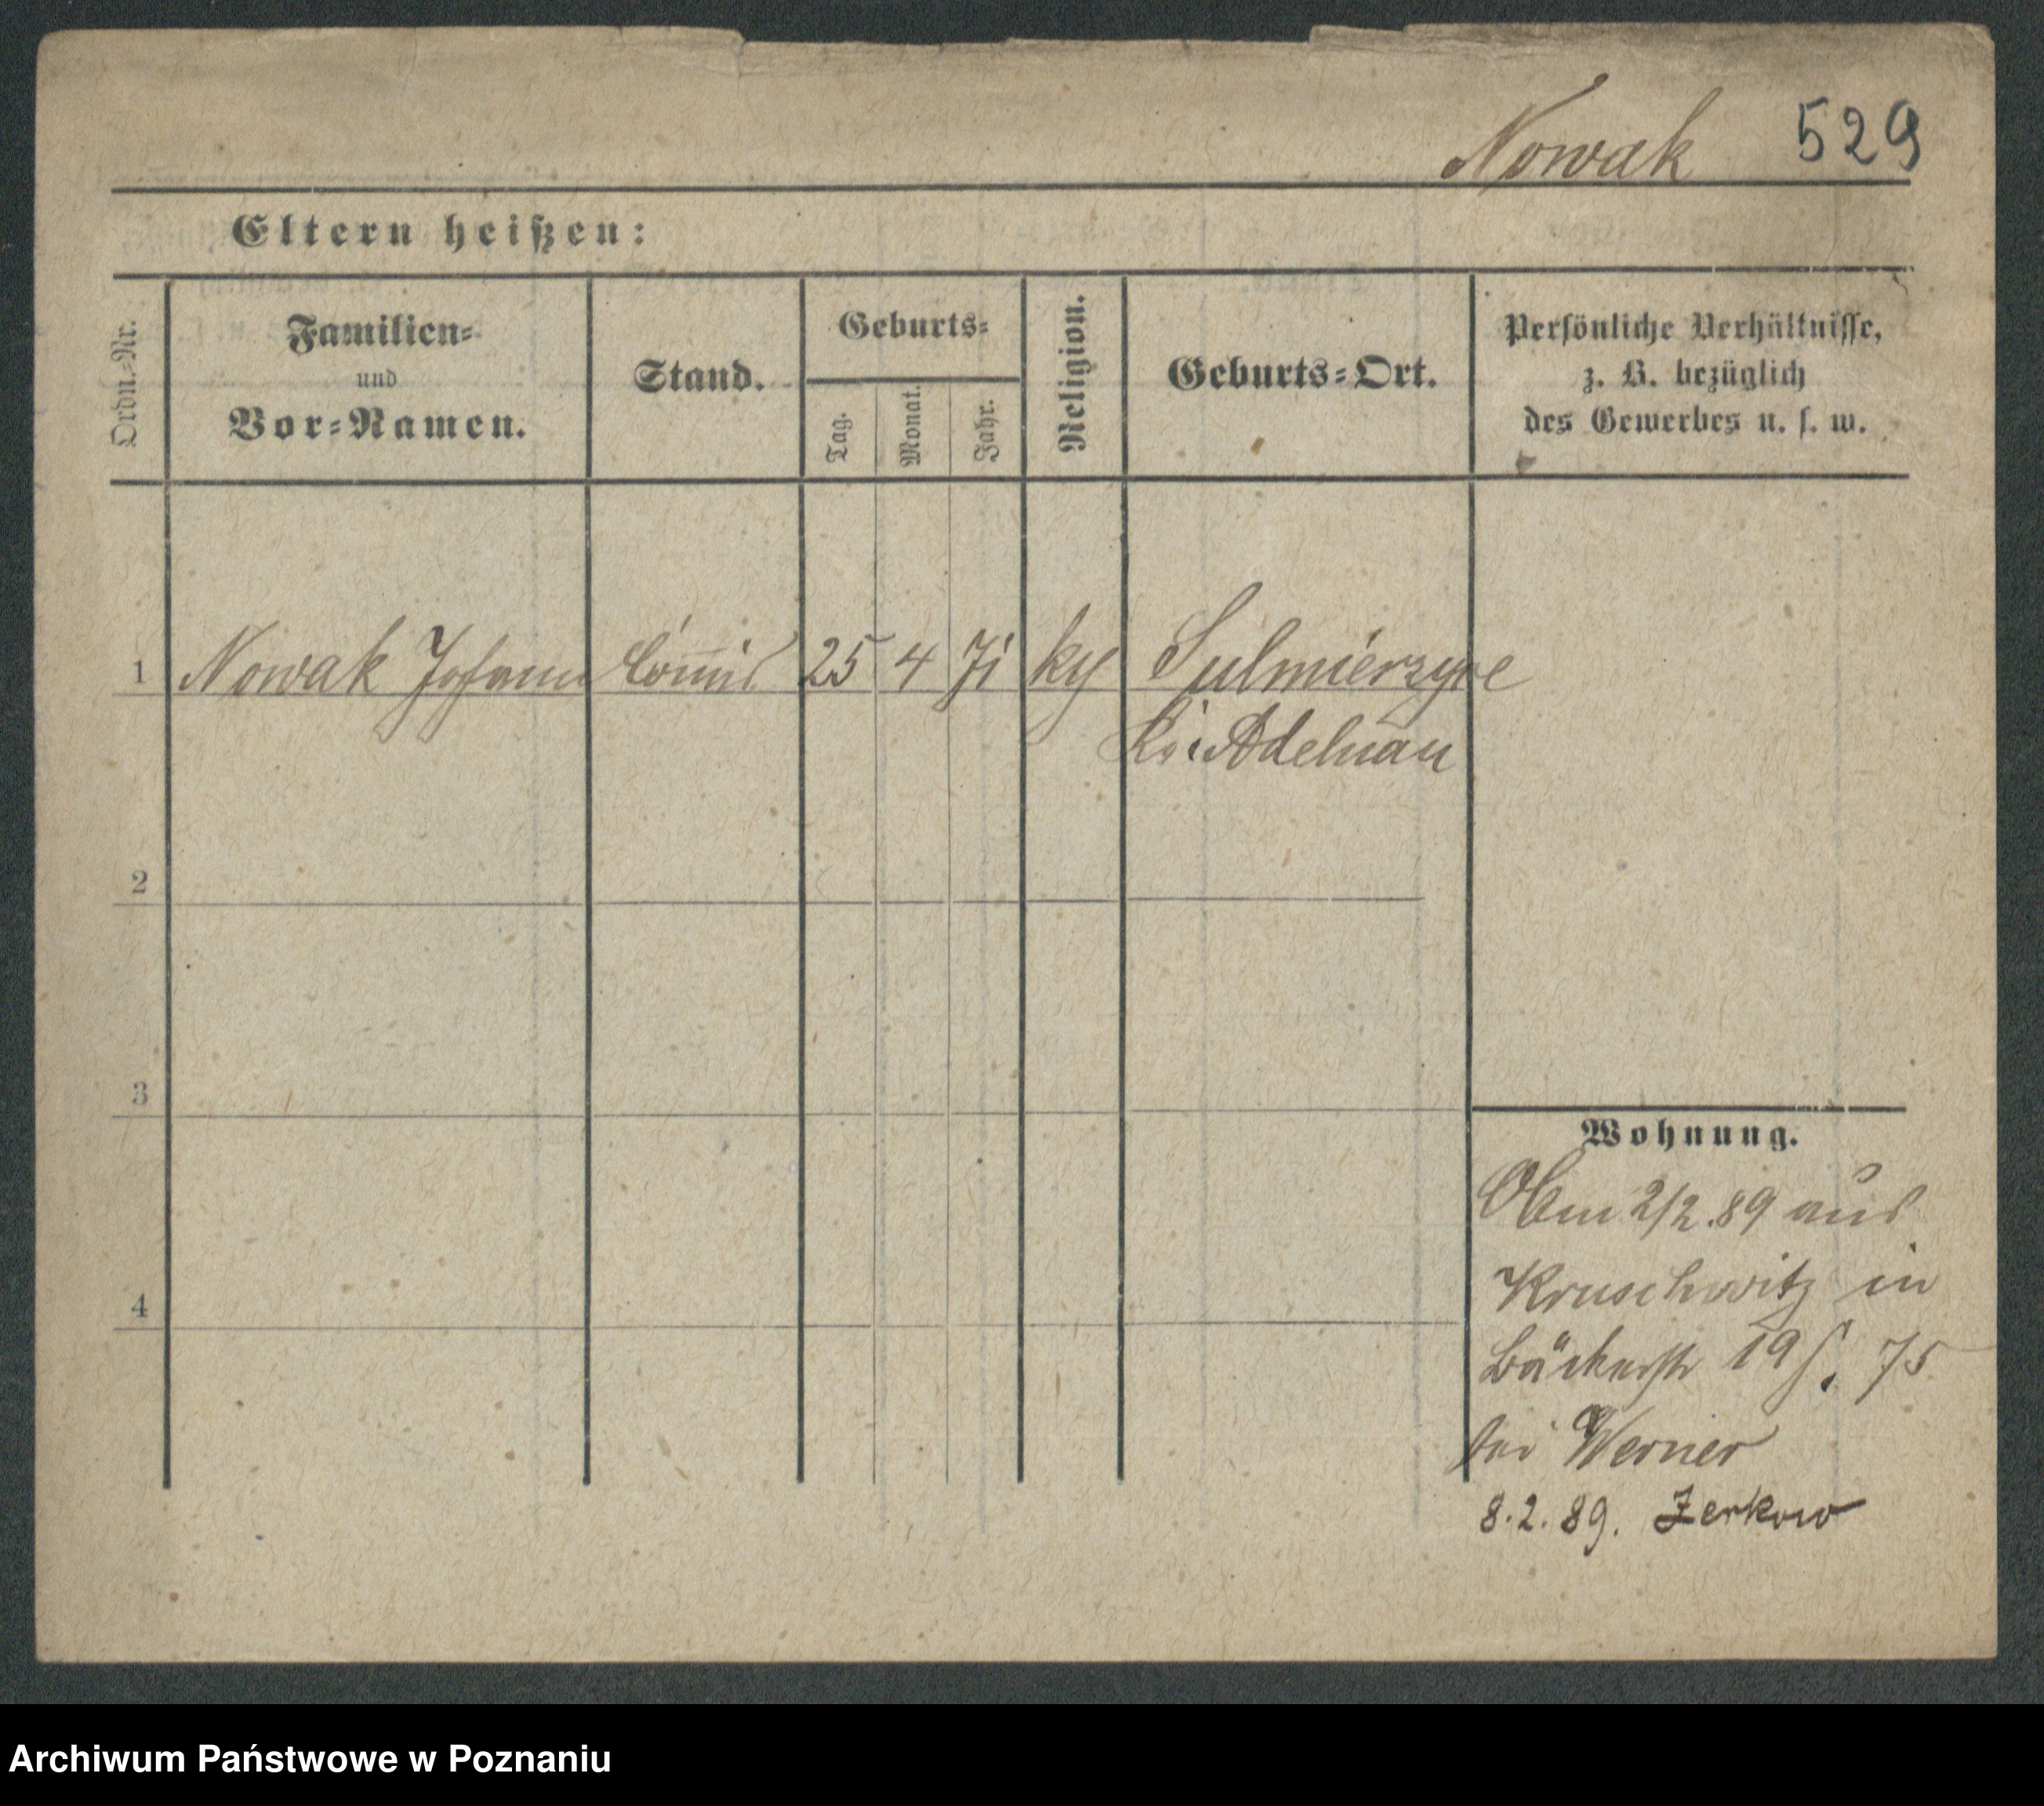 Nowak 529
Eltern heißen:
Ordn.-Nr.
Familien-
und
Vor-Namen.
Stand.
Geburts-
Tag.
Monat.
Jahr.
Religion.
Geburts-Ort.
Persönliche Verhältnisse,
z. B. bezüglich
des Gewerbes u. s. w.
1 Nowak Johann Com̄is 25 4 71 Sulmierzyce
Adelnau
2
3
4
Wohnung.
2/2.89 aus
Kruschwitz in
Bäckerstr 19 75
bei Werner
8.2.89. Zerkow
Archiwum Państwowe w Poznaniu